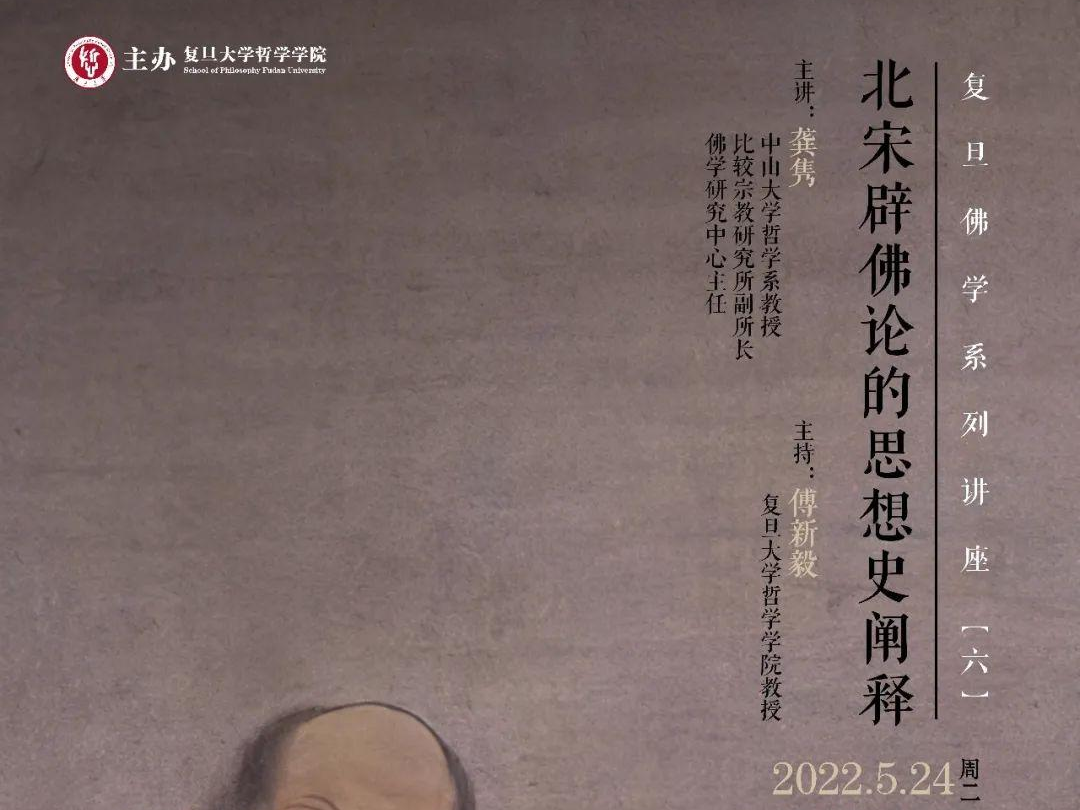 主办 复旦大学哲学学院
School of Philosophy Fudan University
复旦佛学系列讲座【六】
北宋辟佛论的思想史阐释
主讲：龚隽
中山大学哲学系教授
比较宗教研究所副所长
佛学研究中心主任
主持：傅新毅
复旦大学哲学学院教授
2022.5.24 周二